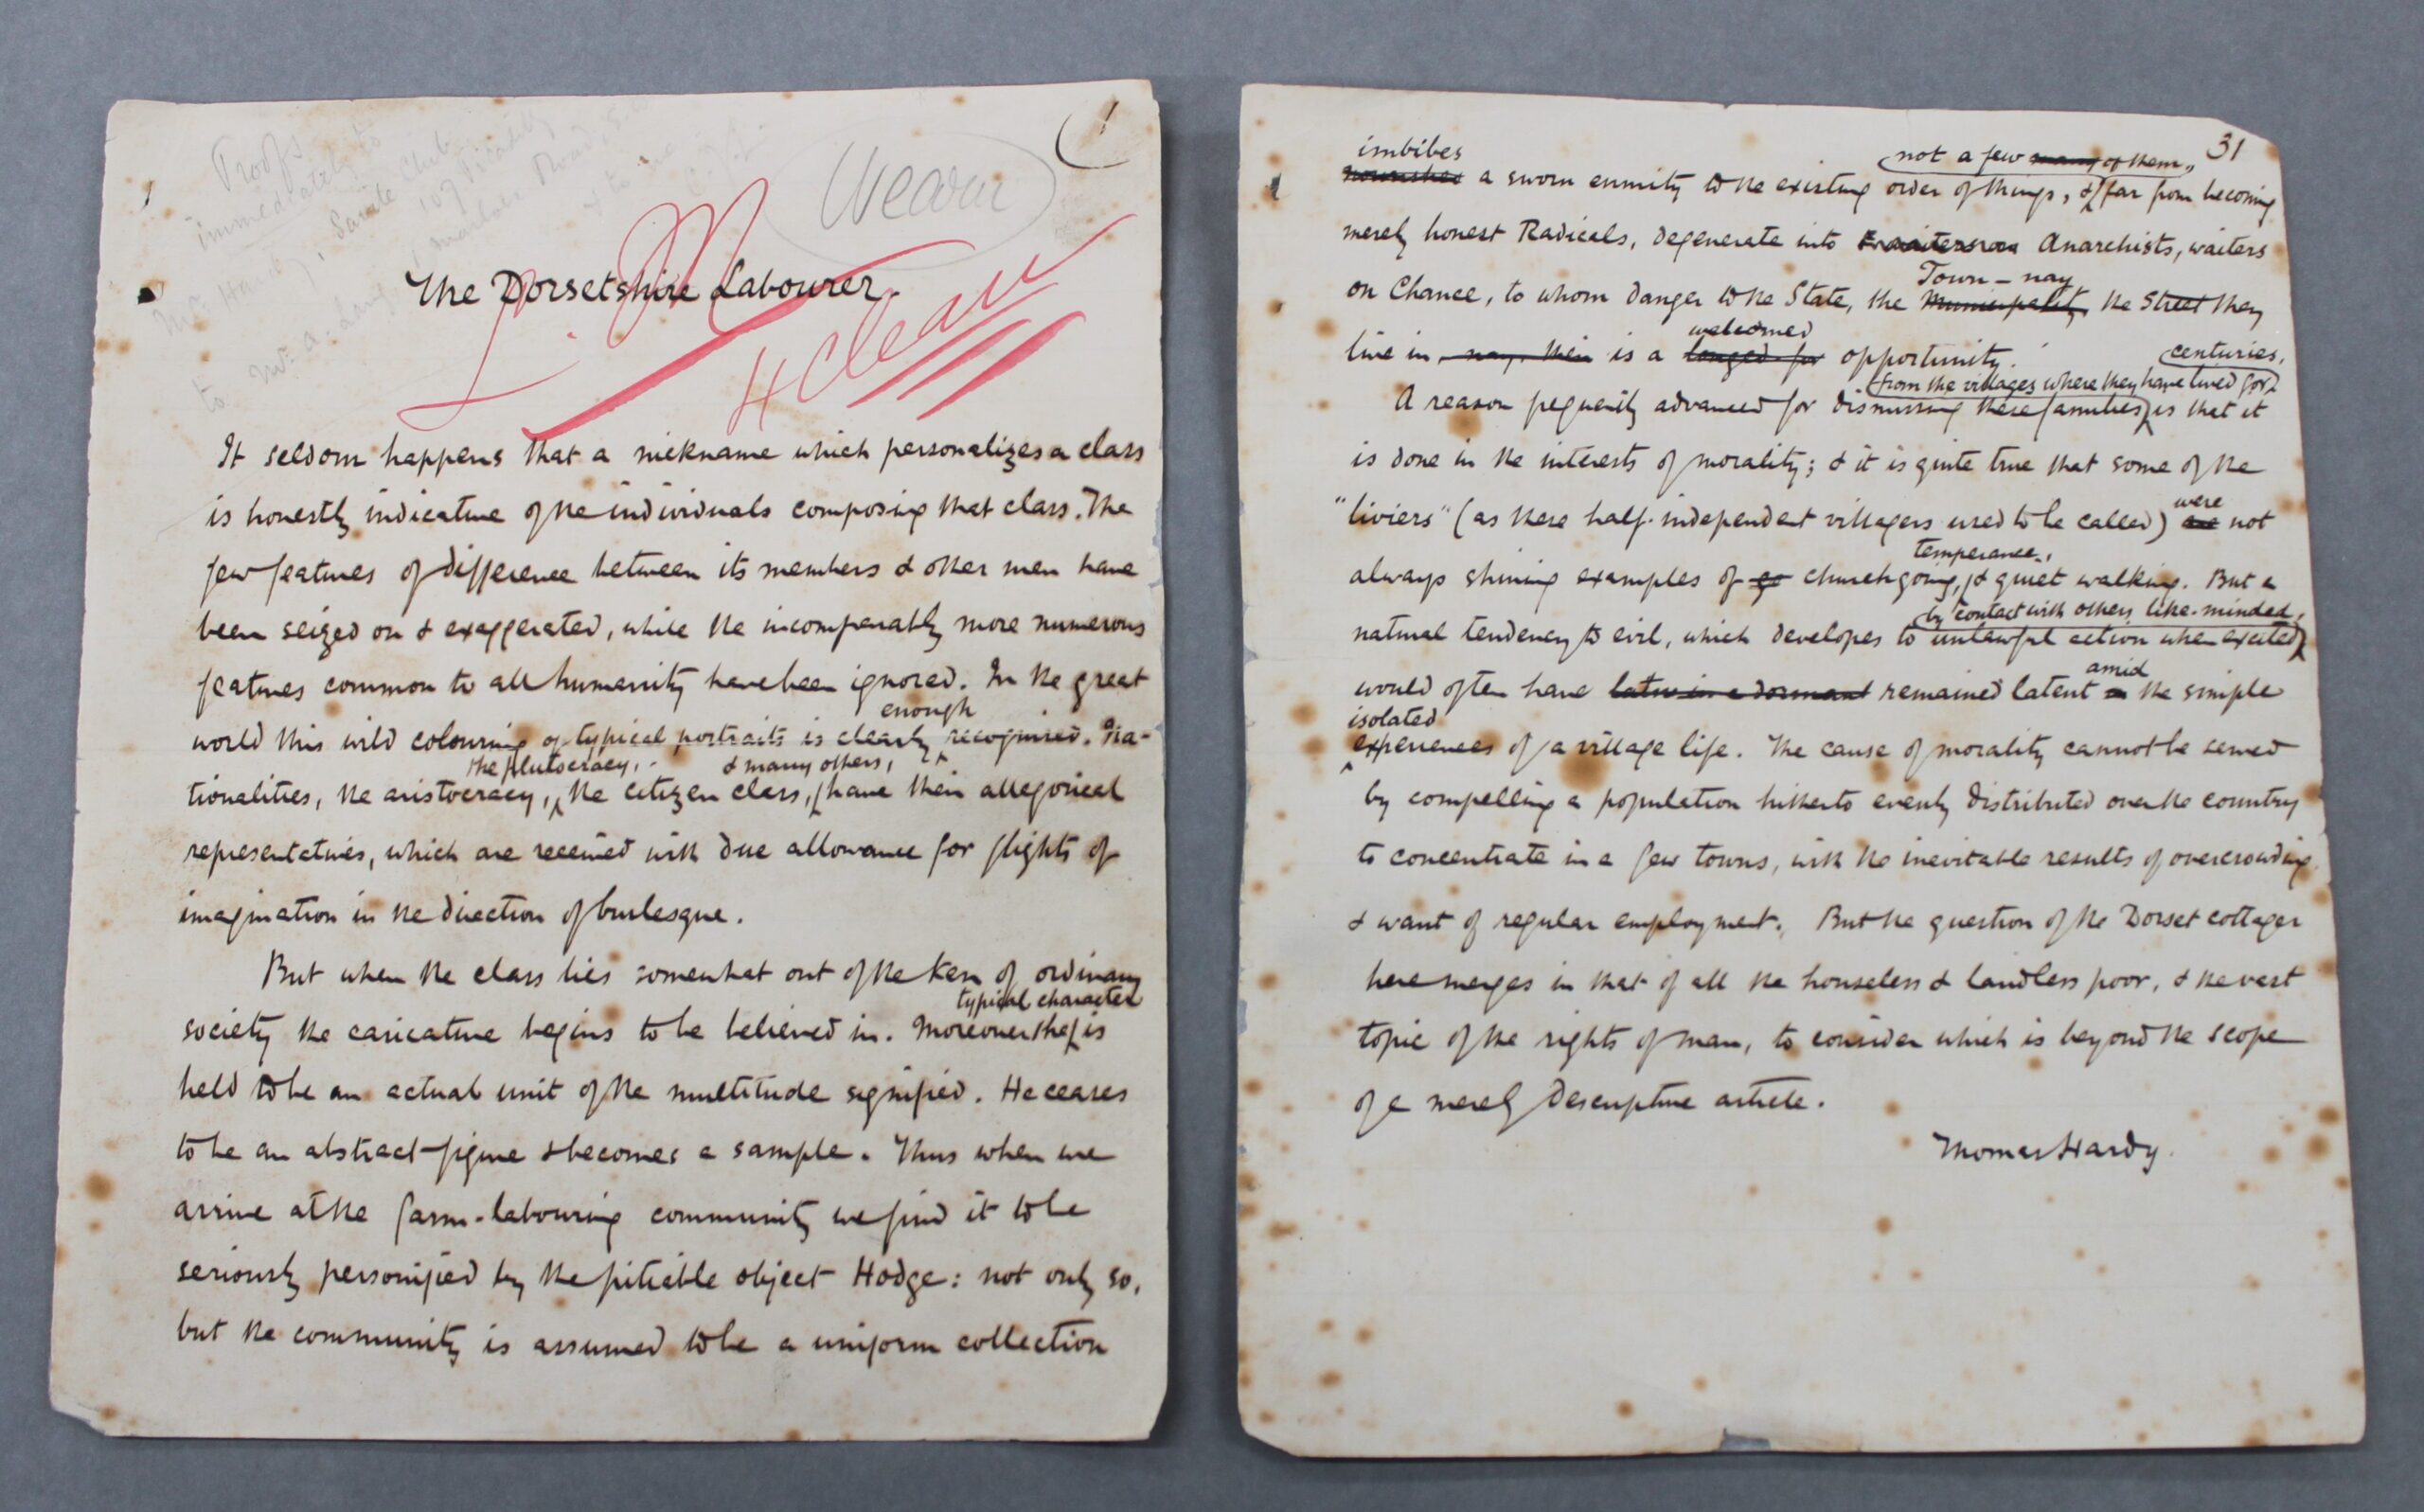 1
Proofs
immediately to
Savile Club
107 Piccadilly
Wearn
The Dorsetshire Labourer.
H Clean
It seldom happens that a nickname which personalizes a class
is honestly indicative of the individuals composing that class. The
few features of difference between its members & other men have
been seized on & exaggerated, while the incomparably more numerous
features common to all humanity have been ignored. In the great
enough
world this wild colouring of typical portraits is clearly recognised. Na-
the plutocracy, & many others,
tionalities, the aristocracy, the citizen class, have their allegorical
representatives, which are received with due allowance for flights of
imagination in the direction of burlesque.
But when the class lies somewhat out of the ken of ordinary
typical character
society the caricature begins to be believed in. Moreover the is
held to be an actual unit of the multitude signified. He ceases
to be an abstract figure & becomes a sample. Thus when we
arrive at the farm-labouring community we find it to be
seriously personified by the pitiable object Hodge: not only so,
but the community is assumed to be a uniform collection
31
imbibes not a few many of them,
nourishes a sworn enmity to the existing order of things, & far from becoming
merely honest Radicals, degenerate into Anarchists, waiters
Town – nay
on Chance, to whom danger to the State, the Municipality, the Street they
welcomed
live in, nay, their is a longed-for opportunity.
centuries,
from the villages where they have lived for
A reason frequently advanced for dismissing these families is that it
is done in the interests of morality; & it is quite true that some of the
were
"liviers" (as these half-independent villagers used to be called) are not
temperance,
always shining examples of go churchgoing, & quiet walking. But a
by contact with others like-minded,
natural tendency to evil, which developes to unlawful action when excited
amid
would often have remained latent in the simple
isolated
experiences of a village life. The cause of morality cannot be served
by compelling a population hitherto evenly distributed over the country
to concentrate in a few towns, with the inevitable results of overcrowding
& want of regular employment. But the question of the Dorset cottager
here merges in that of all the houseless & landless poor, & the vast
topic of the rights of man, to consider which is beyond the scope
of a merely descriptive article.
Thomas Hardy.